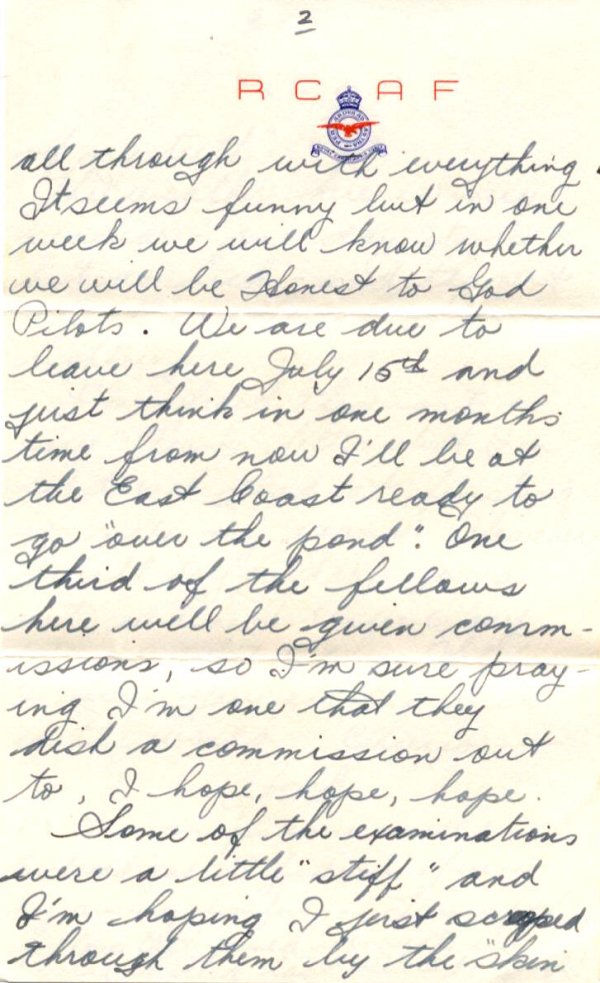 2
R C A F
PER ARDUA AD ASTRA
all through with everything.
It seems funny but in one
week we will know whether
we will be Honest to God
Pilots. We are due to
leave here July 15th and
just think in one months
time from now I'll be at
the East Coast ready to
go "over the pond". One
third of the fellows
here will be given comm-
issions, so I'm sure pray-
ing I'm one that they
dish a commission out
to, I hope, hope, hope.
Some of the examinations
were a little "stiff" and
I'm hoping I just scraped
through them by the "skin